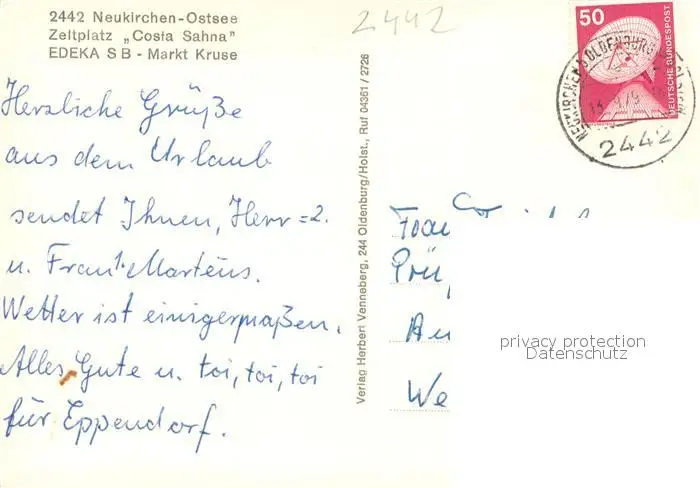 2442 Neukirchen-Ostsee
Zeltplatz „Costa Sahna"
EDEKA S B - Markt Kruse
2442
50
DEUTSCHE BUNDESPOST
2442
Herzliche Grüße
aus dem Urlaub
sendet Ihnen, Herr
u. Frau Martens.
Wetter ist einigermaßen.
Alles Gute u. toi, toi, toi
für Eppendorf.
Verlag Herbert Venneberg, 244 Oldenburg/Holst., Ruf 04361 / 2726
privacy protection
Datenschutz